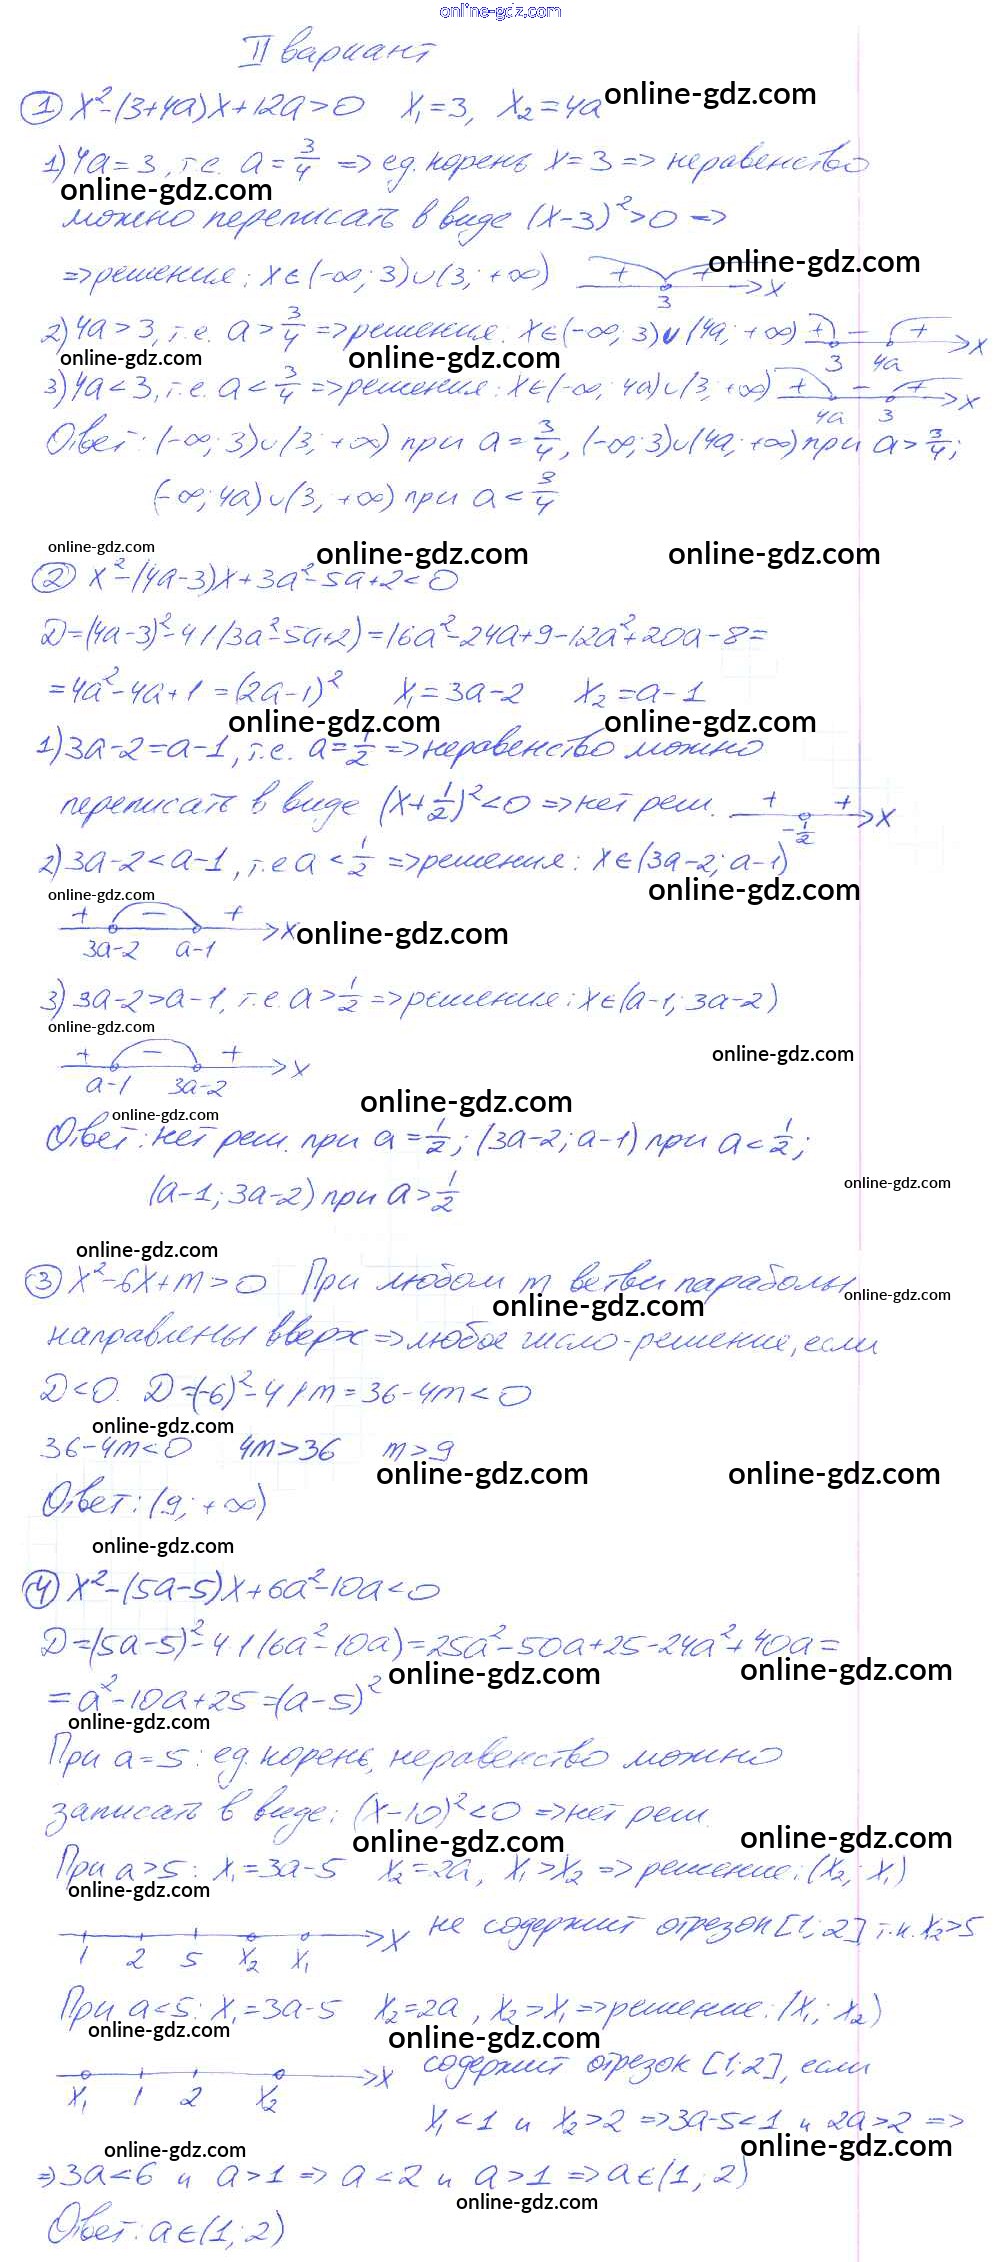 online-gdz.com
II вариант
① x²-(3+4a)x+12a>0 x₁=3, x₂=4a online-gdz.com
1) 4a=3, т.е. a=3/4 => ед. корень x=3 => неравенство
online-gdz.com
можно переписать в виде (x-3)²>0 =>
=> решения: x∈(-∞; 3)∪(3; +∞) + + 3 x online-gdz.com
2) 4a>3, т.е. a>3/4 => решения: x∈(-∞; 3)∪(4a; +∞) + - + 3 4a x
online-gdz.com online-gdz.com
3) 4a<3, т.е. a<3/4 => решения: x∈(-∞; 4a)∪(3; +∞) + - + 4a 3 x
Ответ: (-∞; 3)∪(3; +∞) при a=3/4, (-∞; 3)∪(4a; +∞) при a>3/4;
(-∞; 4a)∪(3; +∞) при a<3/4
online-gdz.com online-gdz.com online-gdz.com
② x²-(4a-3)x+3a²-5a+2<0
D=(4a-3)²-4·1·(3a²-5a+2)=16a²-24a+9-12a²+20a-8=
=4a²-4a+1=(2a-1)² x₁=3a-2 x₂=a-1
online-gdz.com online-gdz.com
1) 3a-2=a-1, т.е. a=1/2 => неравенство можно
переписать в виде (x+1/2)²<0 => нет реш. + + -1/2 x
2) 3a-2<a-1, т.е. a<1/2 => решения: x∈(3a-2; a-1)
online-gdz.com online-gdz.com
+ - + x online-gdz.com
3a-2 a-1
3) 3a-2>a-1, т.е. a>1/2 => решения: x∈(a-1; 3a-2)
online-gdz.com
+ - + x online-gdz.com
a-1 3a-2
online-gdz.com online-gdz.com
Ответ: нет реш. при a=1/2; (3a-2; a-1) при a<1/2;
(a-1; 3a-2) при a>1/2 online-gdz.com
online-gdz.com
③ x²-6x+m>0 При любом m ветви параболы
online-gdz.com online-gdz.com
направлены вверх => любое число-решение, если
D<0. D=(-6)²-4·1·m=36-4m<0
online-gdz.com
36-4m<0 4m>36 m>9
online-gdz.com online-gdz.com
Ответ: (9; +∞)
online-gdz.com
④ x²-(5a-5)x+6a²-10a<0
D=(5a-5)²-4·1·(6a²-10a)=25a²-50a+25-24a²+40a=
online-gdz.com online-gdz.com
=a²-10a+25=(a-5)²
online-gdz.com
При a=5: ед. корень, неравенство можно
записать в виде: (x-10)²<0 => нет реш.
online-gdz.com online-gdz.com
При a>5: x₁=3a-5 x₂=2a, x₁>x₂ => решение: (x₂; x₁)
online-gdz.com
1 2 5 x₂ x₁ x не содержит отрезок [1; 2] т.к. x₂>5
При a<5: x₁=3a-5 x₂=2a, x₂>x₁ => решение: (x₁; x₂)
online-gdz.com online-gdz.com
x₁ 1 2 x₂ x содержит отрезок [1; 2], если
x₁<1 и x₂>2 => 3a-5<1 и 2a>2 =>
online-gdz.com online-gdz.com
=> 3a<6 и a>1 => a<2 и a>1 => a∈(1; 2)
online-gdz.com
Ответ: a∈(1; 2)